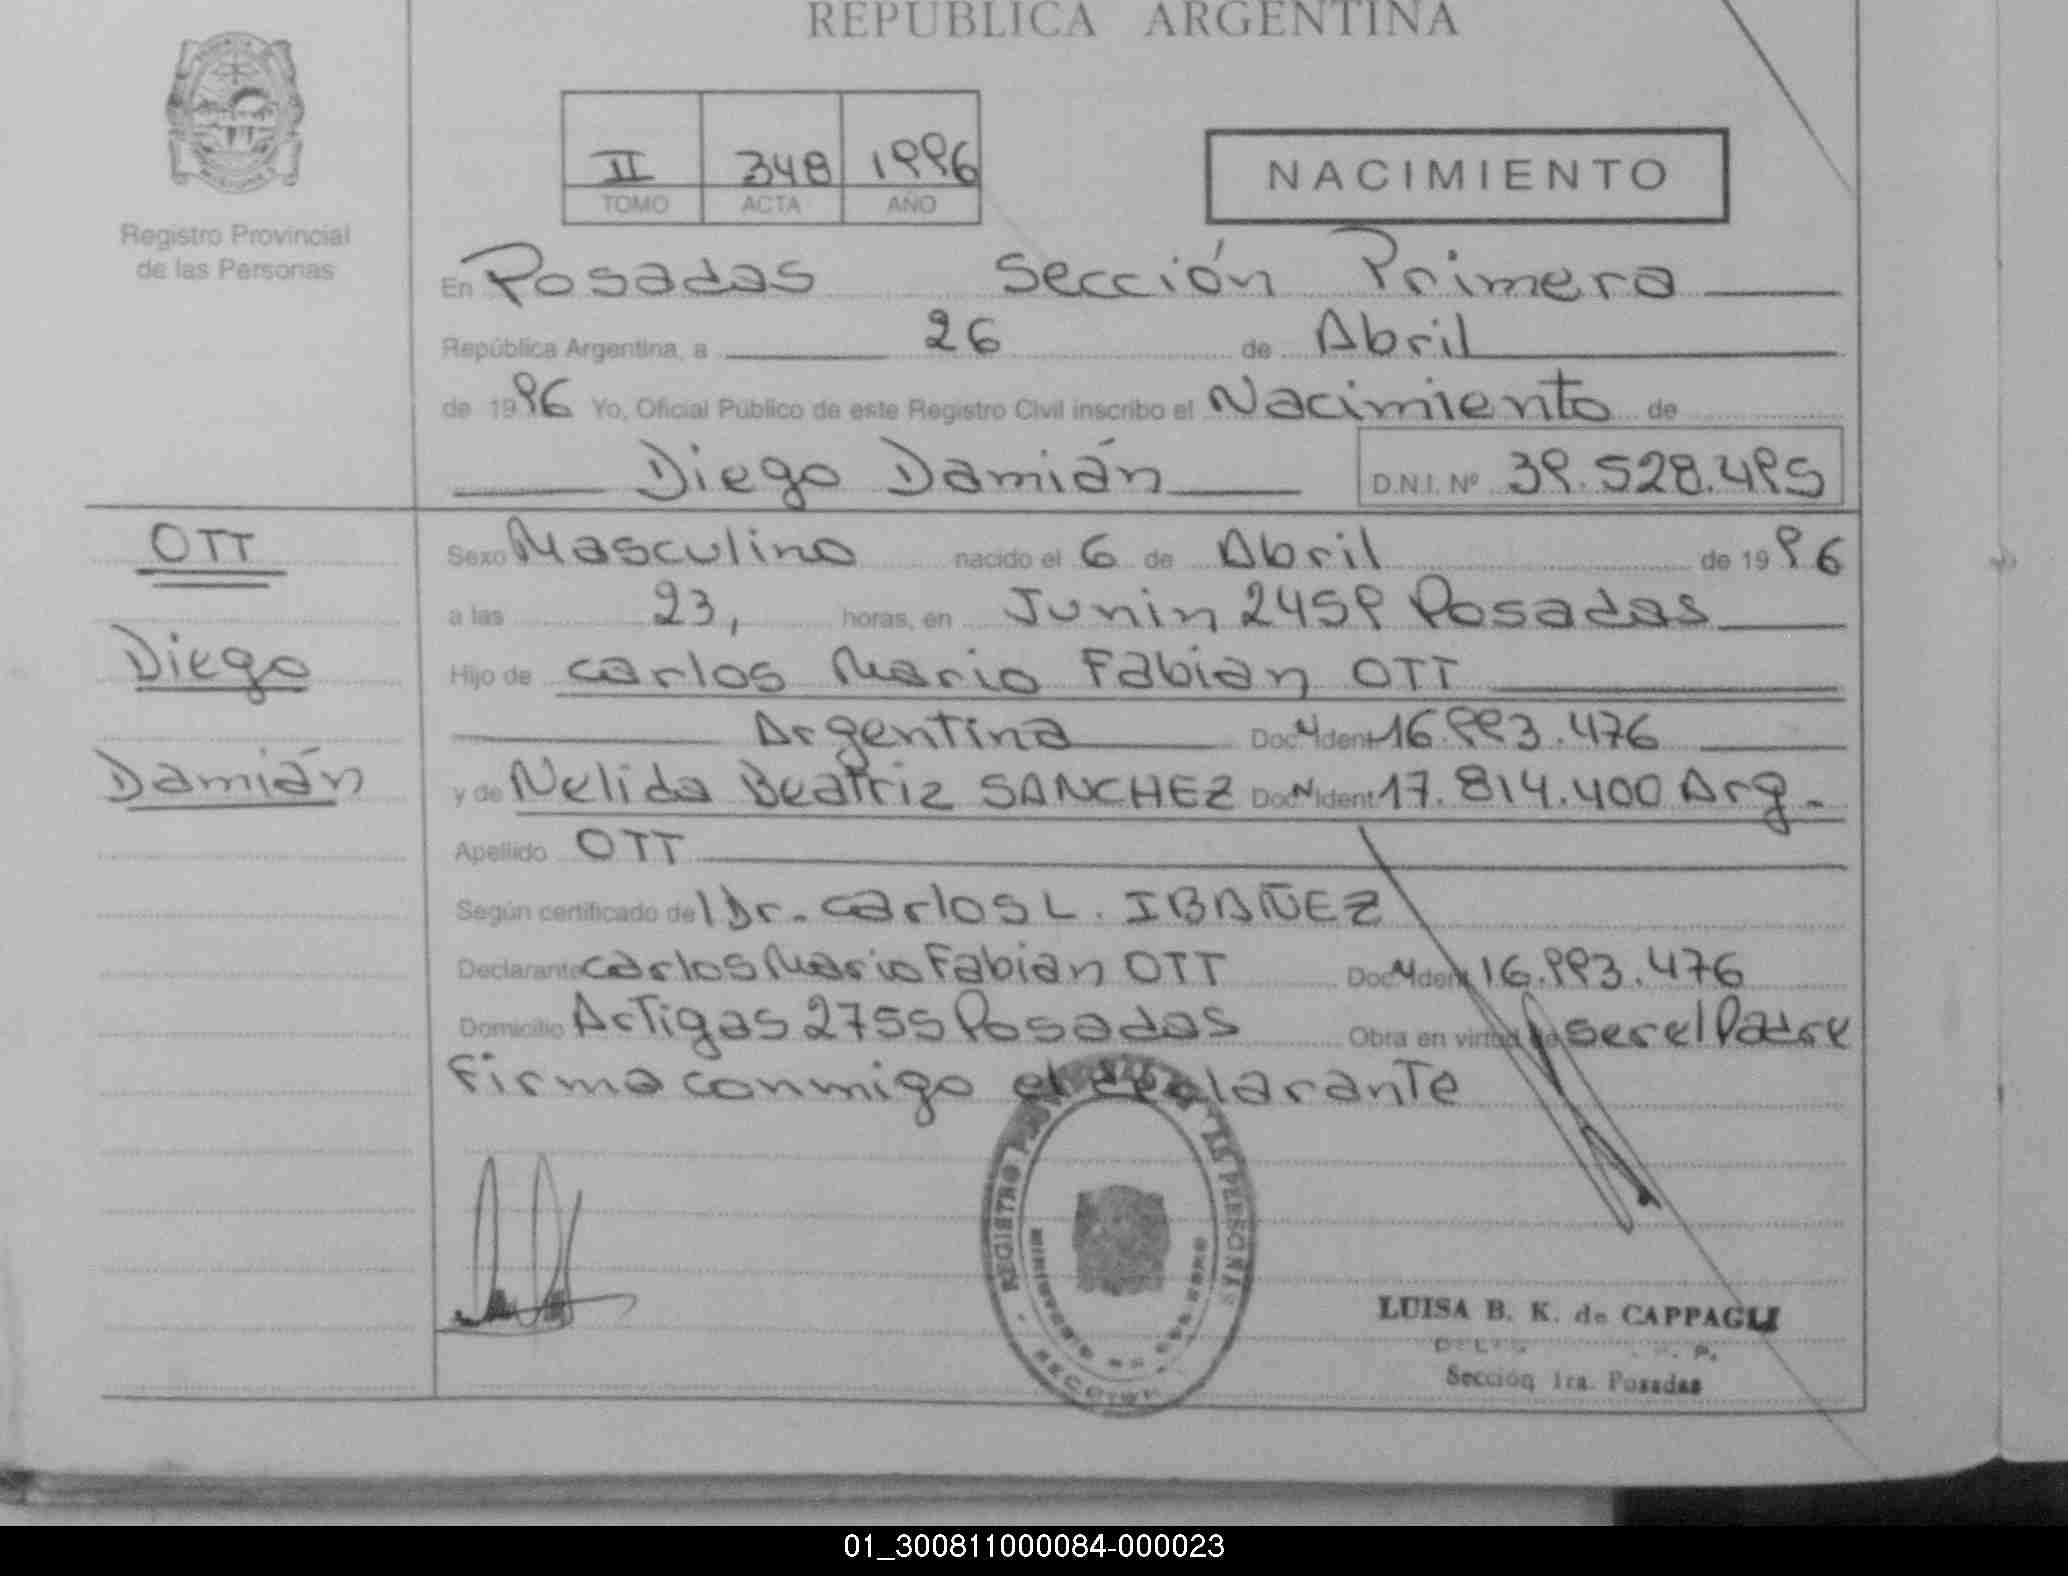 REPUBLICA ARGENTINA
II 348 1996
TOMO ACTA AÑO
NACIMIENTO
Registro Provincial
de las Personas
En Posadas Sección Primera
República Argentina, a 26 de Abril
de 1996 Yo, Oficial Público de este Registro Civil inscribo el Nacimiento de
Diego Damián D.N.I. Nº 39.528.495
OTT
Diego
Damián
Sexo Masculino nacido el 6 de Abril de 1996
a las 23, horas, en Junin 2459 Posadas
Hijo de Carlos Mario Fabian OTT
Argentina Doc. N Ident 16.993.476
y de Nelida Beatriz SANCHEZ Doc N Ident 17.814.400 Arg.
Apellido OTT
Según certificado del Dr. Carlos L. IBAÑEZ
Declarante Carlos Mario Fabian OTT Doc N Ident 16.993.476
Domicilio Artigas 2755 Posadas Obra en virtud de ser el Padre
Firma conmigo el declarante
REGISTRO DE LAS PERSONAS
MINISTERIO DE GOBIERNO
SECCION
LUISA B. K. de CAPPAGLI
Sección 1ra. Posadas
01_300811000084-000023